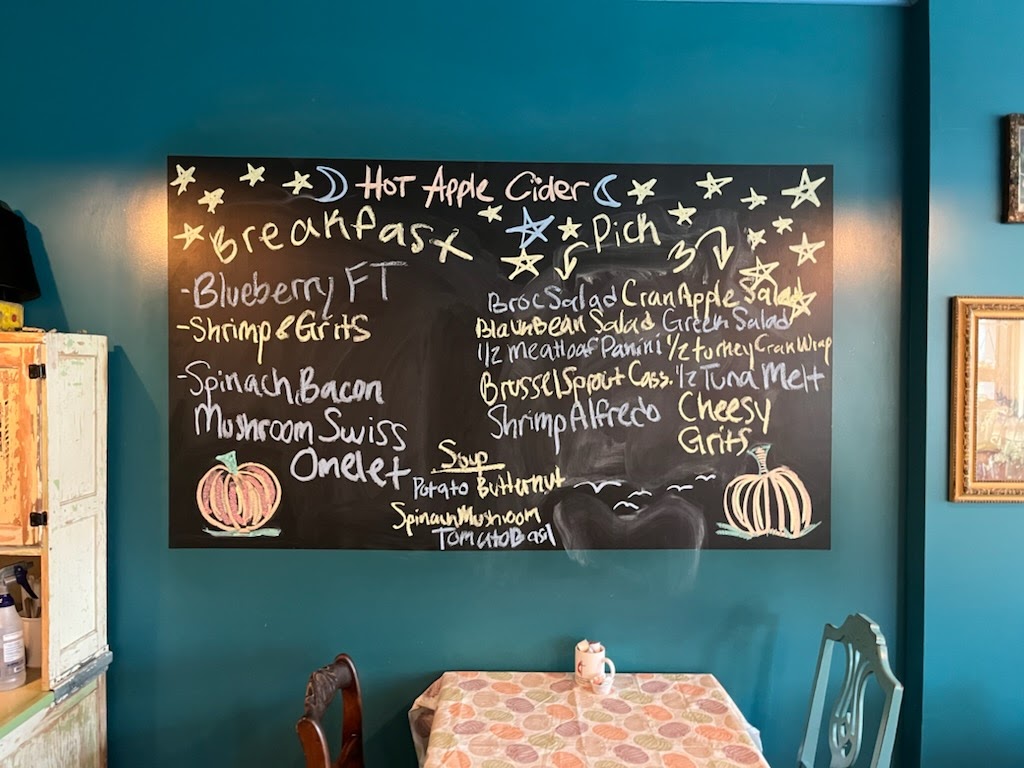 Hot Apple Cider
Breakfast
-Blueberry FT
-Shrimp & Grits
-Spinach, Bacon
Mushroom Swiss
Omelet
Pick 3
Broc Salad Cran Apple Salad
Black Bean Salad Green Salad
1/2 Meatloaf Panini 1/2 turney Cran Wrap
Brussel Sprout Cass. 1/2 Tuna Melt
Shrimp Alfredo Cheesy
Grits
Soup
Potato Butternut
Spinach Mushroom
Tomato Basil